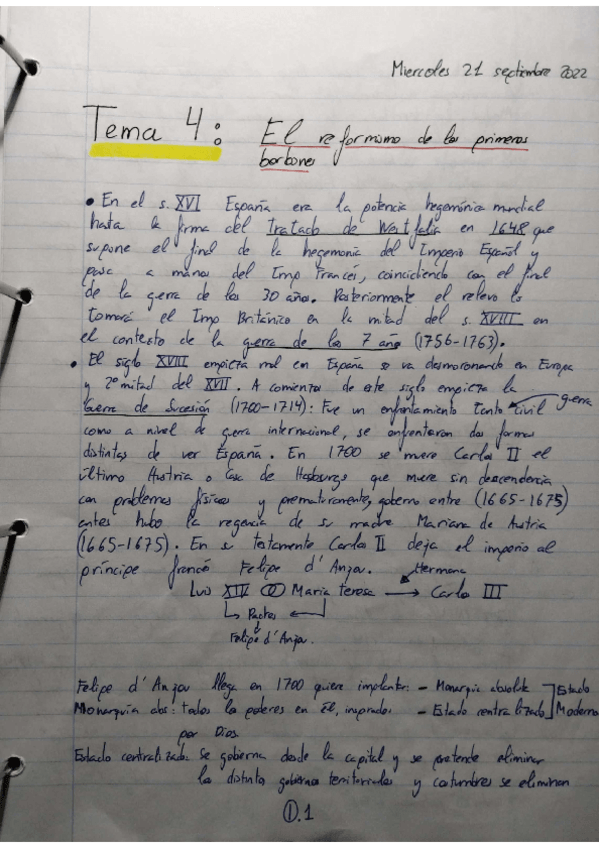 Miercoles 21 septiembre 2022
Tema 4: El reformismo de los primeros
borbones
• En el s. XVI España era la potencia hegemónica mundial
hasta la firma del Tratado de Westfalia en 1648 que
supone el final de la hegemonia del Imperio Español y
pasa a manos del Imp Francés, coincidiendo con el final
de la gerra de los 30 años. Posteriormente el relevo lo
tomará el Imp Británico en la mitad del s. XVIII en
el contexto de la gerra de los 7 años (1756-1763).
• El siglo XVIII empieza mal en España se va desmoronando en Europa
y 2º mitad del XVII. A comienzos de este siglo empieza la
Gerra de Sucesión (1700-1714): Fue un enfrentamiento tanto civil
gerra
como a nivel de gerra internacional, se enfrentaron dos formas
distintas de ver España. En 1700 se muere Carlos II el
último Austria o Casa de Hasburgo que muere sin descendencia
con problemas físicos y prematoramente, goberno entre (1665-1675)
antes hubo la regencia de su madre Mariana de Austria
(1665-1675). En su testamento Carlos II deja el imperio al
príncipe francés Felipe d'Anjou.
Hermana
Luis XIV Maria Teresa → Carlos III
Felipe d'Anjou.
Felipe d'Anjou llega en 1700 quiere implantar: - Monarquia absoluta
Estado
Monarquía abs: todos los poderes en Él, inspirado - Estado centralizado
Moderno
por Dios
Estado centralizado: Se gobierna desde la capital y se pretende eliminar
los distintos gobiernos territoriales y costumbres se eliminan
①.1